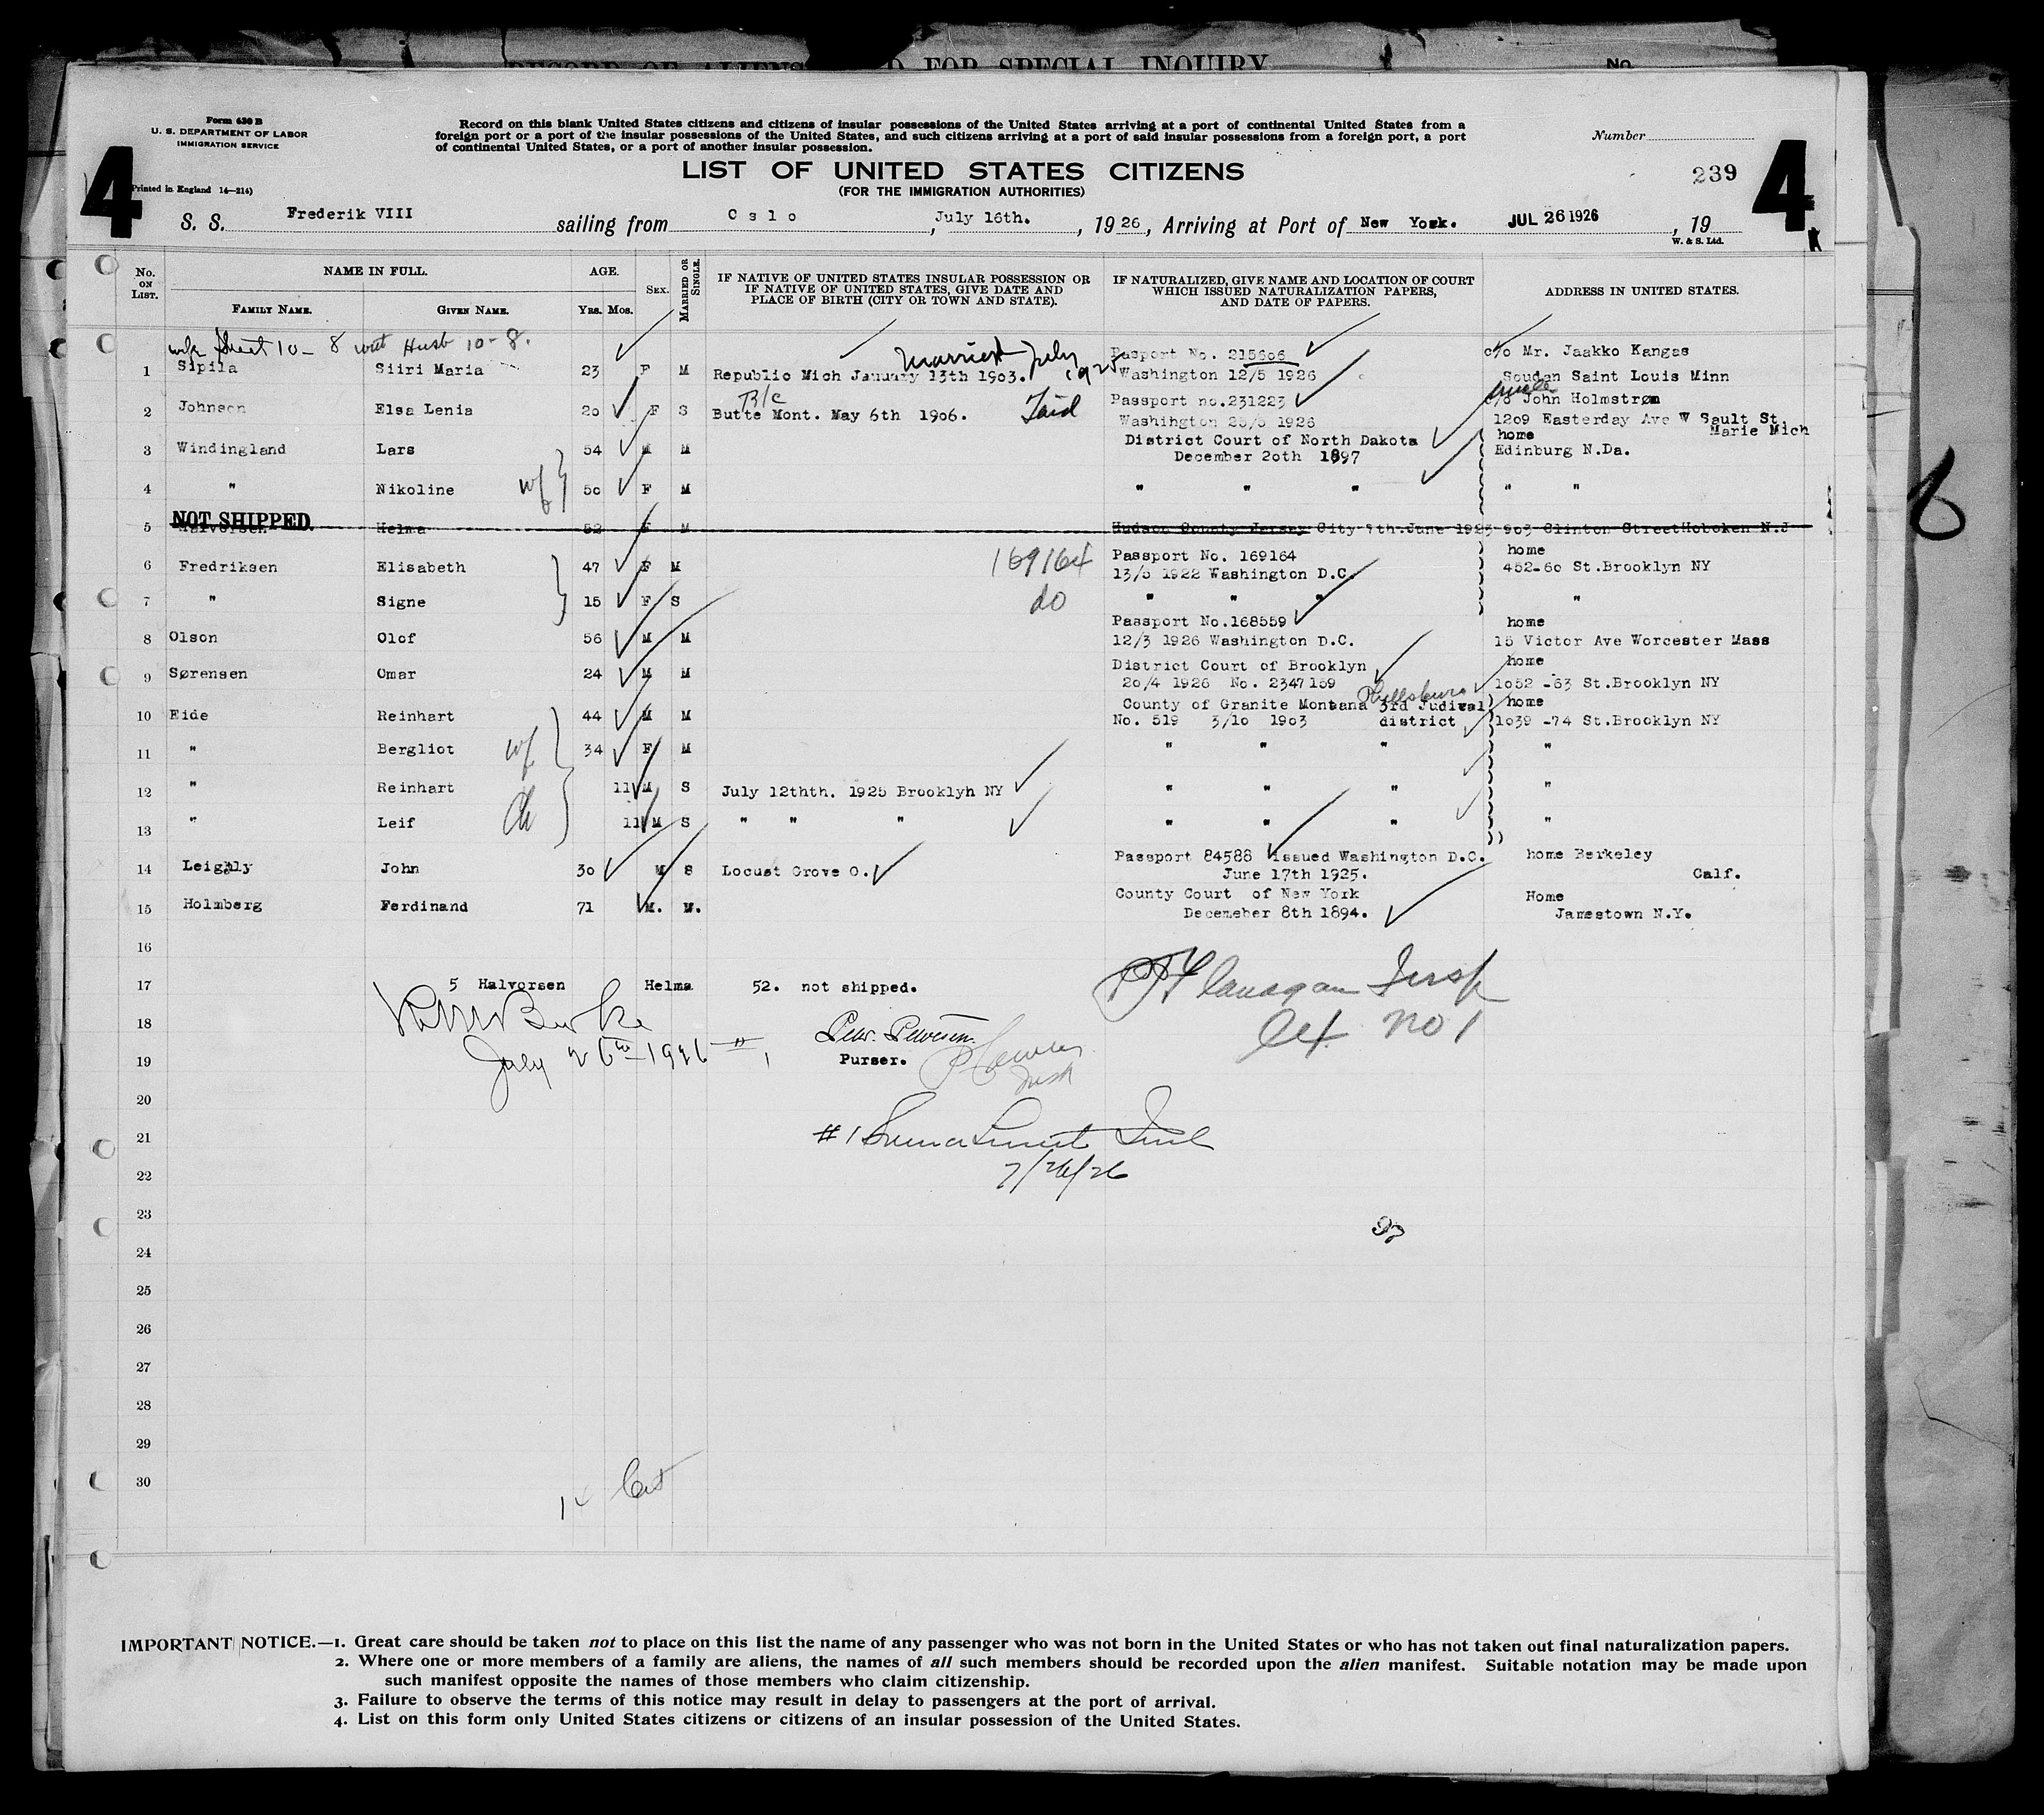 RECORD OF ALIENS D FOR SPECIAL INQUIRY
No.
Form 630 B
U. S. DEPARTMENT OF LABOR
IMMIGRATION SERVICE
Record on this blank United States citizens and citizens of insular possessions of the United States arriving at a port of continental United States from a
foreign port or a port of the insular possessions of the United States, and such citizens arriving at a port of said insular possessions from a foreign port, a port
of continental United States, or a port of another insular possession.
Number
4
4
Printed in England 14—214)
LIST OF UNITED STATES CITIZENS
(FOR THE IMMIGRATION AUTHORITIES)
239
S. S. Frederik VIII sailing from Oslo, July 16th., 1926, Arriving at Port of New York. JUL 26 1926, 19
W. & S. Ltd.
No. ON LIST.
NAME IN FULL.
FAMILY NAME.
GIVEN NAME.
AGE.
YRS. MOS.
SEX.
MARRIED OR SINGLE.
IF NATIVE OF UNITED STATES INSULAR POSSESSION OR
IF NATIVE OF UNITED STATES, GIVE DATE AND
PLACE OF BIRTH (CITY OR TOWN AND STATE).
IF NATURALIZED, GIVE NAME AND LOCATION OF COURT
WHICH ISSUED NATURALIZATION PAPERS,
AND DATE OF PAPERS.
ADDRESS IN UNITED STATES.
Sheet 10-8 Husb 10-8.
Married July 1925
Pasport No. 215606 c/o Mr. Jaakko Kangas
1 Sipila Siiri Maria 23 F M Republic Mich January 13th 1903. Washington 12/5 1926 Soudan Saint Louis Minn
B/c
Passport no.231223 uncle c/o John Holmstrøm
2 Johnson Elsa Lenia 20 F S Butte Mont. May 6th 1906. Washihgton 25/5 1926 1209 Easterday Ave W Sault St. Marie Mich
District Court of North Dakota home
3 Windingland Lars 54 M M December 20th 1897 Edinburg N.Da.
4 " Nikoline wf 50 F M " " " " "
NOT SHIPPED.
5 Halvorsen Helma 52 F M Hudson County Jersey City 7th.June 1923 903 Clinton StreetHoboken N.J
169164 Passport No. 169164 home
6 Fredriksen Elisabeth 47 F M 13/5 1922 Washington D.C. 452-60 St.Brooklyn NY
7 " Signe 15 F S do " " " "
Passport No.168559 home
8 Olson Olof 56 M M 12/3 1926 Washington D.C. 15 Victor Ave Worcester Mass
District Court of Brooklyn home
9 Sørensen Omar 24 M M 20/4 1926 No. 2347159 1052 -63 St.Brooklyn NY
County of Granite Montana 3rd Judical home
10 Eide Reinhart 44 M M No. 519 3/10 1903 district 1039 -74 St.Brooklyn NY
11 " Bergliot wf 34 F M " " " "
12 " Reinhart 11 M S July 12thth. 1925 Brooklyh NY " " " "
13 " Leif ch 11 M S " " " " " " "
Passport 84588 issued Washington D.C. home Berkeley
14 Leighly John 30 M S Locust Grove O. June 17th 1925. Calf.
County Court of New York Home
15 Holmberg Ferdinand 71 M. M. Decemeber 8th 1894. Jamestown N.Y.
16
17 5 Halvorsen Helma 52. not shipped.
Flanagan Insp
18
July 26th 1926
19 Purser.
20
21
22 7/26/26
23
24
25
26
27
28
29
30
IMPORTANT NOTICE.—1. Great care should be taken not to place on this list the name of any passenger who was not born in the United States or who has not taken out final naturalization papers.
2. Where one or more members of a family are aliens, the names of all such members should be recorded upon the alien manifest. Suitable notation may be made upon
such manifest opposite the names of those members who claim citizenship.
3. Failure to observe the terms of this notice may result in delay to passengers at the port of arrival.
4. List on this form only United States citizens or citizens of an insular possession of the United States.